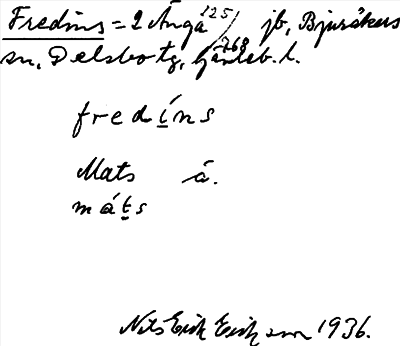 Fredins = 2 Ånga 125/768 jb, Bjuråkers
sn, Delsbo tg, Gävleb. l.
fredíns
Mats å.
máts
Nils Erik Eriksson 1936.